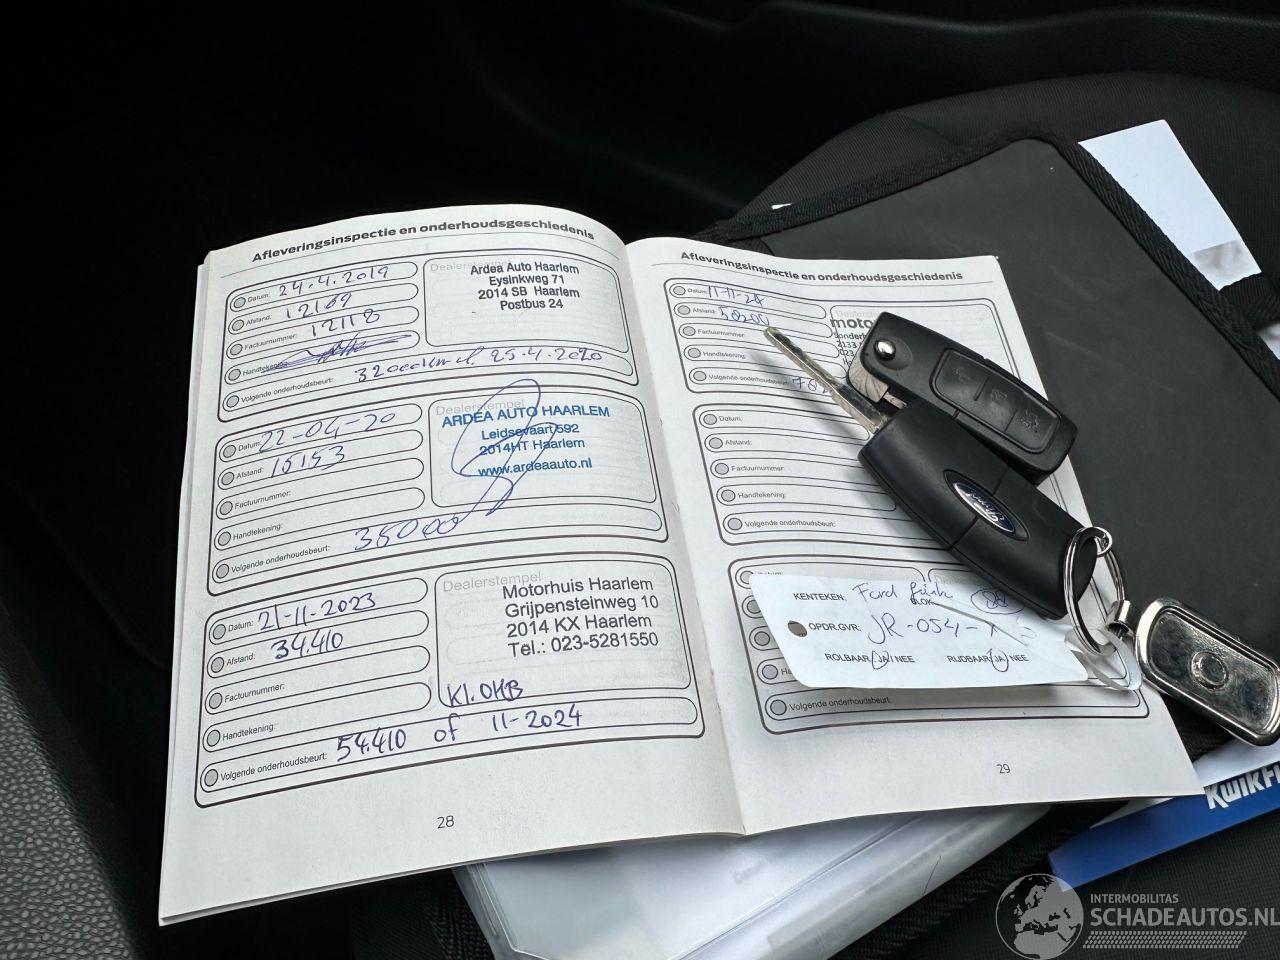 Afleveringsinspectie en onderhoudsgeschiedenis
Datum: 24-4-2019
Afstand: 12169
Factuurnummer: 12118
Handtekening:
Volgende onderhoudsbeurt: 25.4.2020
Dealerstempel
Ardea Auto Haarlem
Eysinkweg 71
2014 SB Haarlem
Postbus 24
Datum: 22-04-20
Afstand: 15153
Factuurnummer:
Handtekening:
Volgende onderhoudsbeurt: 35000
Dealerstempel
ARDEA AUTO HAARLEM
Leidsevaart 592
2014HT Haarlem
www.ardeaauto.nl
Datum: 21-11-2023
Afstand: 34.410
Factuurnummer:
Handtekening:
Volgende onderhoudsbeurt: 54.410 of 11-2024
Dealerstempel
Motorhuis Haarlem
Grijpensteinweg 10
2014 KX Haarlem
Tel.: 023-5281550
Kl.OHB
28
Afleveringsinspectie en onderhoudsgeschiedenis
Datum: 11-11-24
Afstand: 58200
Factuurnummer:
Handtekening
Volgende onderhoudsbeurt:
moto
Datum:
Afstand:
Factuurnummer:
Handtekening:
Volgende onderhoudsbeurt:
Volgende onderhoudsbeurt:
29
Ford
KENTEKEN: Ford
OPDR.GVR: JR-054-X
ROLBAAR JA / NEE RIJDBAAR JA / NEE
KwikF
INTERMOBILITAS
SCHADEAUTOS.NL